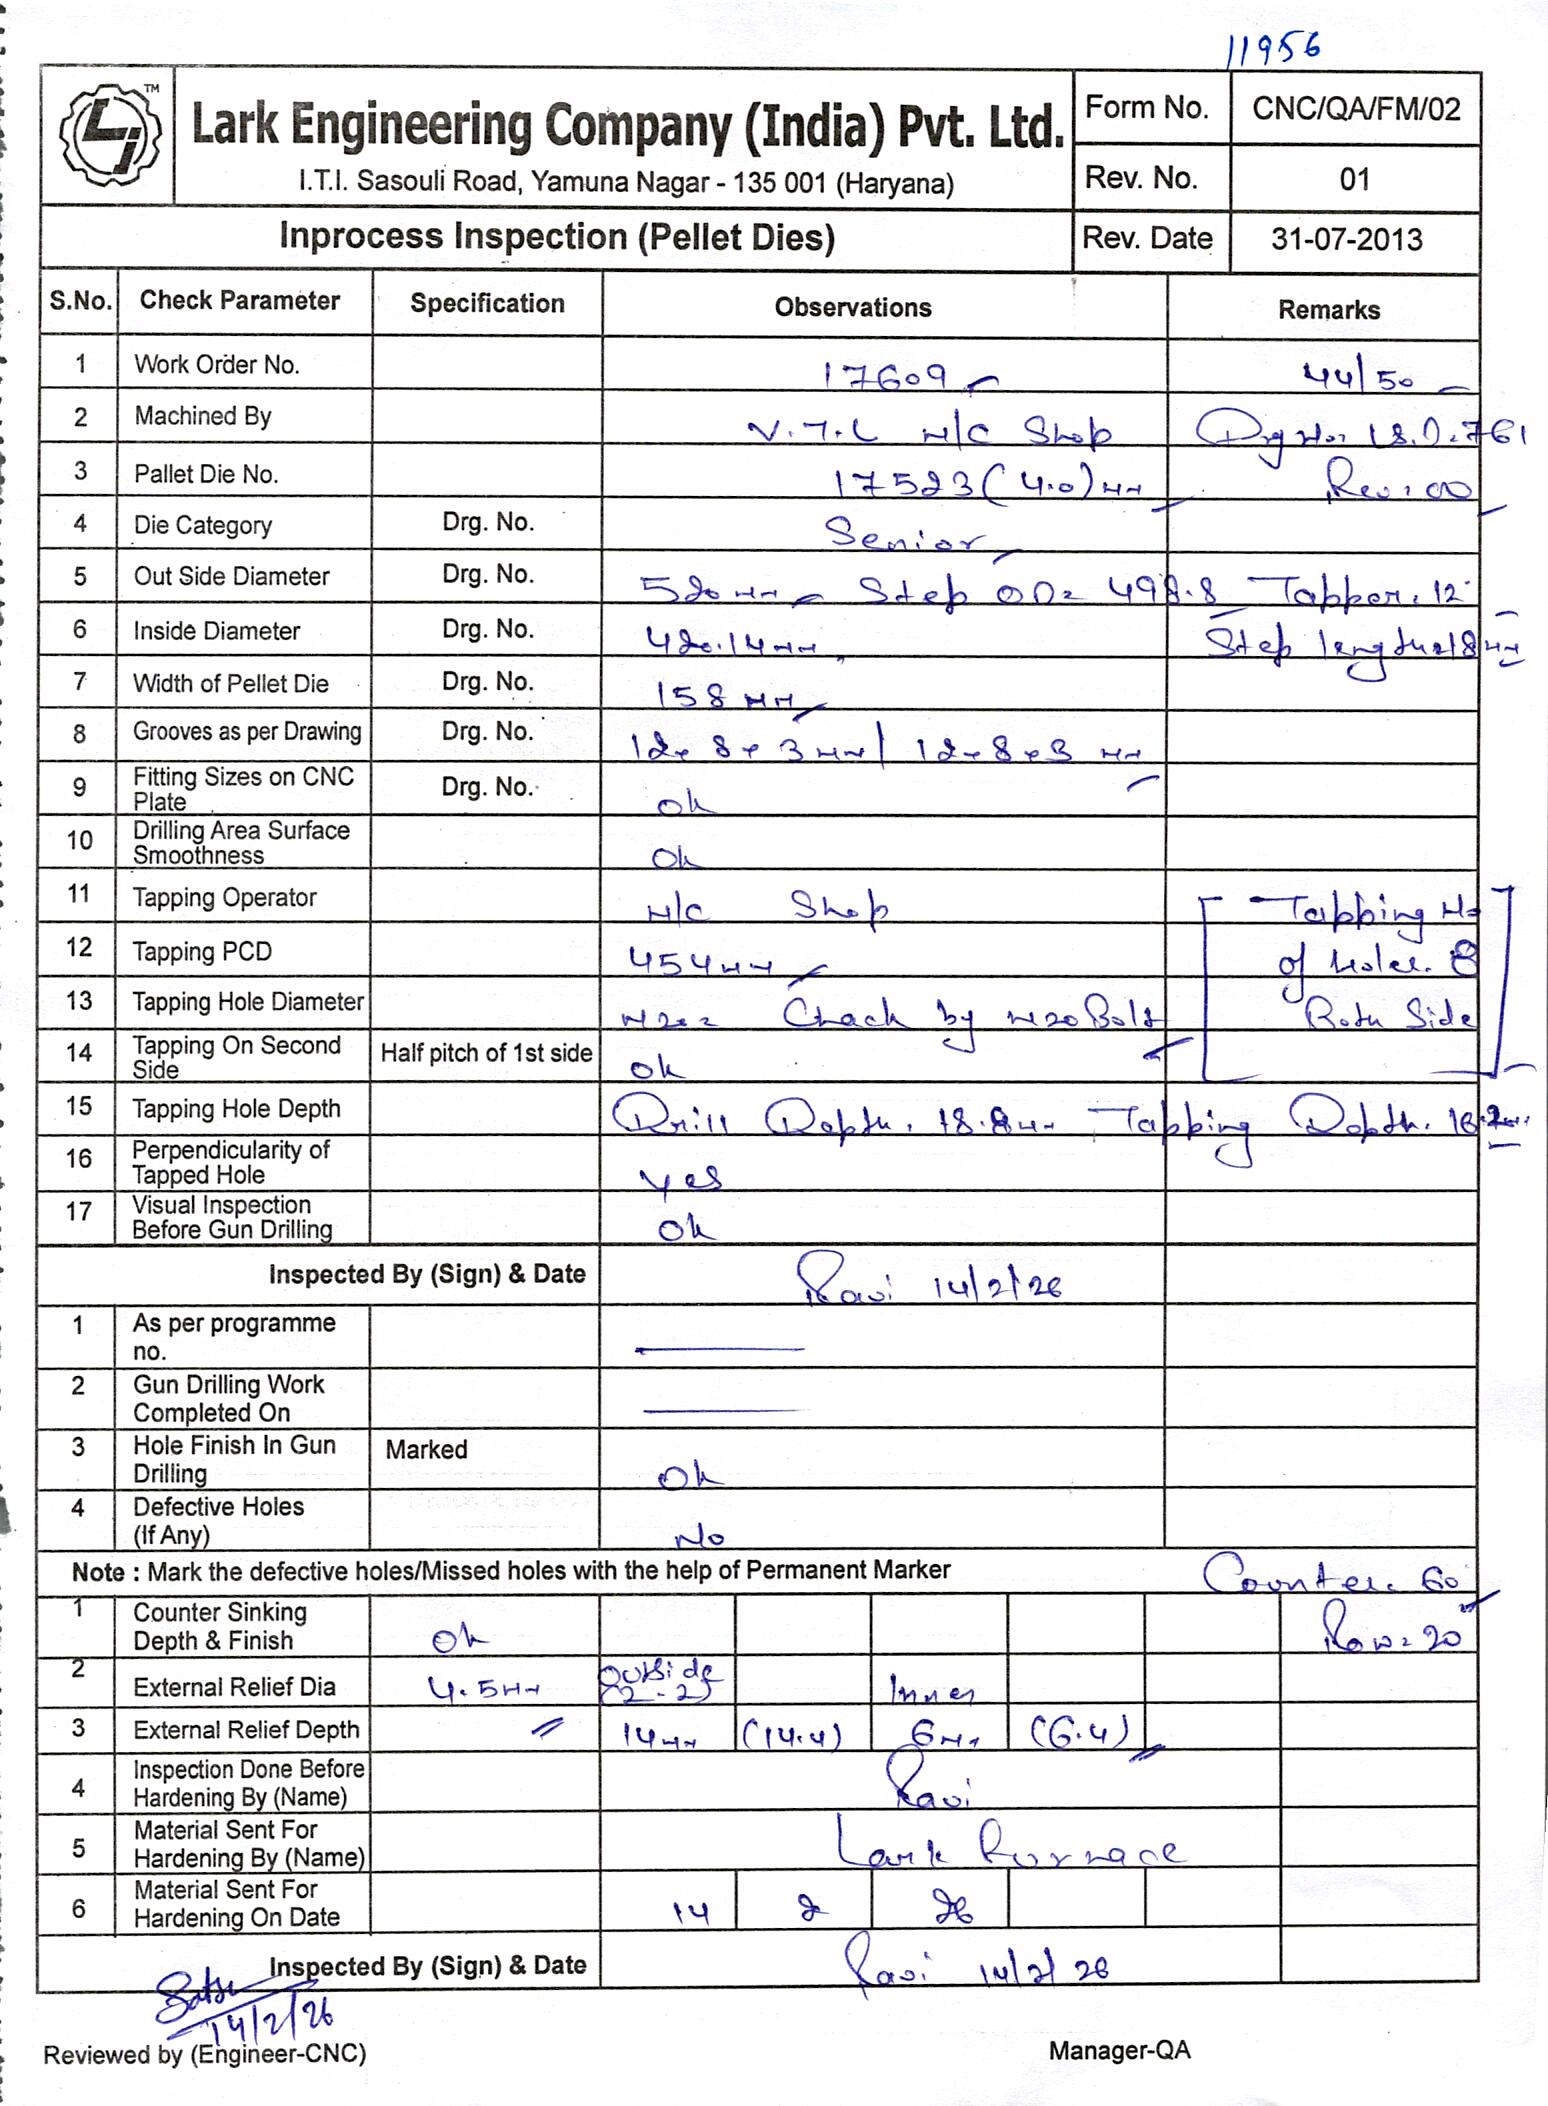 11956
TM
Lark Engineering Company (India) Pvt. Ltd.
I.T.I. Sasouli Road, Yamuna Nagar - 135 001 (Haryana)
Form No. CNC/QA/FM/02
Rev. No. 01
Inprocess Inspection (Pellet Dies) Rev. Date 31-07-2013
S.No. Check Parameter Specification Observations Remarks
1 Work Order No. 17609 44/50
2 Machined By V.T.L M/C Shop Drg No: 18.D.761
3 Pallet Die No. 17523 (4.0) MM Rev: 00
4 Die Category Drg. No. Senior
5 Out Side Diameter Drg. No. 520 MM Step OD= 498.8 Tapper. 12
6 Inside Diameter Drg. No. 420.14 MM Step length 18 MM
7 Width of Pellet Die Drg. No. 158 MM
8 Grooves as per Drawing Drg. No. 12 x 8 x 3 MM / 12 x 8 x 3 MM
9 Fitting Sizes on CNC Plate Drg. No. Ok
10 Drilling Area Surface Smoothness Ok
11 Tapping Operator M/C Shop Tapping No
12 Tapping PCD 454 MM of Holes. 8
13 Tapping Hole Diameter M20= Chack by M20 Bolt Both Side
14 Tapping On Second Side Half pitch of 1st side Ok
15 Tapping Hole Depth Drill Depth. 18.8 MM Tapping Depth. 18.2 MM
16 Perpendicularity of Tapped Hole Yes
17 Visual Inspection Before Gun Drilling Ok
Inspected By (Sign) & Date Ravi 14/2/26
1 As per programme no.
2 Gun Drilling Work Completed On
3 Hole Finish In Gun Drilling Marked Ok
4 Defective Holes (If Any) No
Note : Mark the defective holes/Missed holes with the help of Permanent Marker Counter. 60
1 Counter Sinking Depth & Finish Ok Row= 20
2 External Relief Dia 4.5 MM Outside (2-2) Inner
3 External Relief Depth 14 MM (14.4) 6 MM (6.4)
4 Inspection Done Before Hardening By (Name) Ravi
5 Material Sent For Hardening By (Name) Lark Furnace
6 Material Sent For Hardening On Date 14 2 26
Inspected By (Sign) & Date Ravi 14/2/26
14/2/26
Reviewed by (Engineer-CNC) Manager-QA